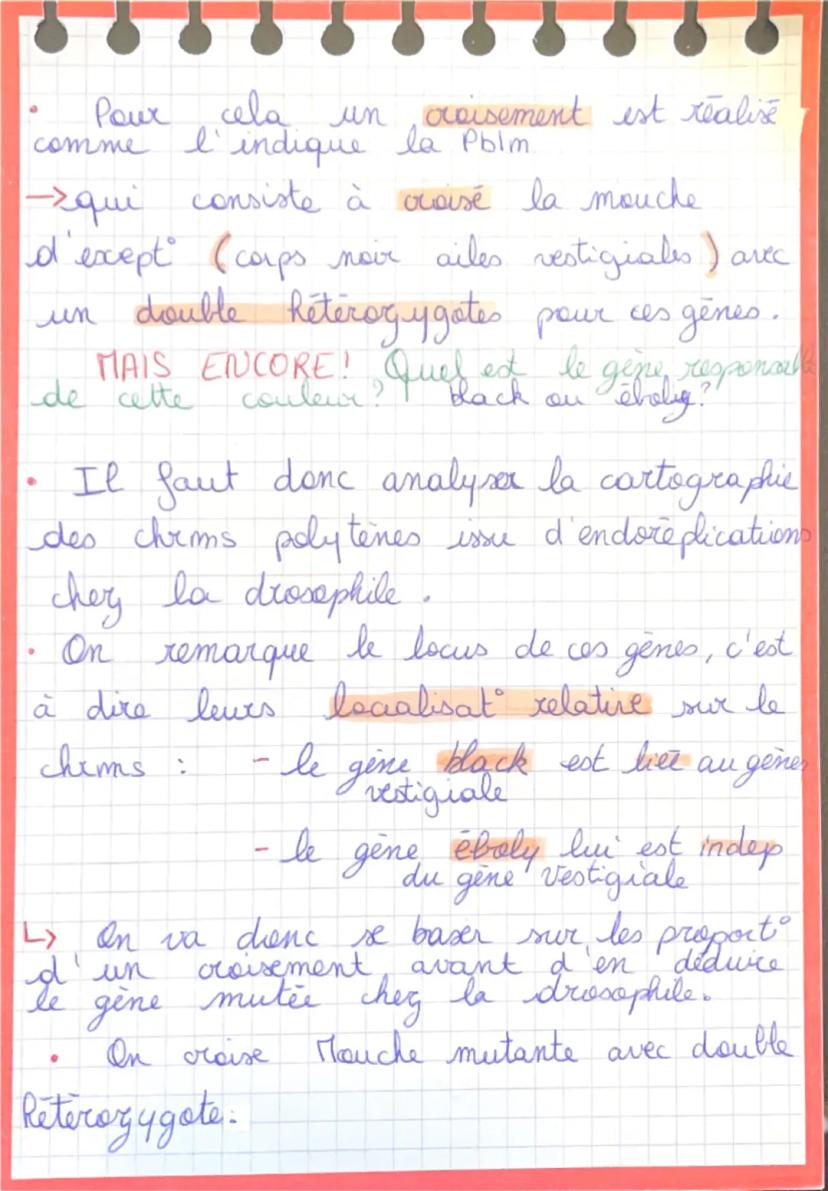 • Pour cela un croisement est réalisé
comme l'indique la Pblm
→ qui consiste à croisé la mouche
d'except° (corps noir ailes vestigiales) avec
un double hétérozygotes pour ces gènes.
MAIS ENCORE! Quel est le gène responsable
de cette couleur? black ou éboly?
• Il faut donc analyser la cartographie
des chrms polytènes issu d'endoréplications
chez la drosophile.
• On remarque le locus de ces gènes, c'est
à dire leurs localisat° relative sur le
chrms : - le gène black est liée au gènes
vestigiale
- le gène éboly lui est indep
du gène vestigiale
↳ On va donc se baser sur les proport°
d'un croisement avant d'en déduire
le gène mutée chez la drosophile.
• On croise Mouche mutante avec double
hétérozygote.